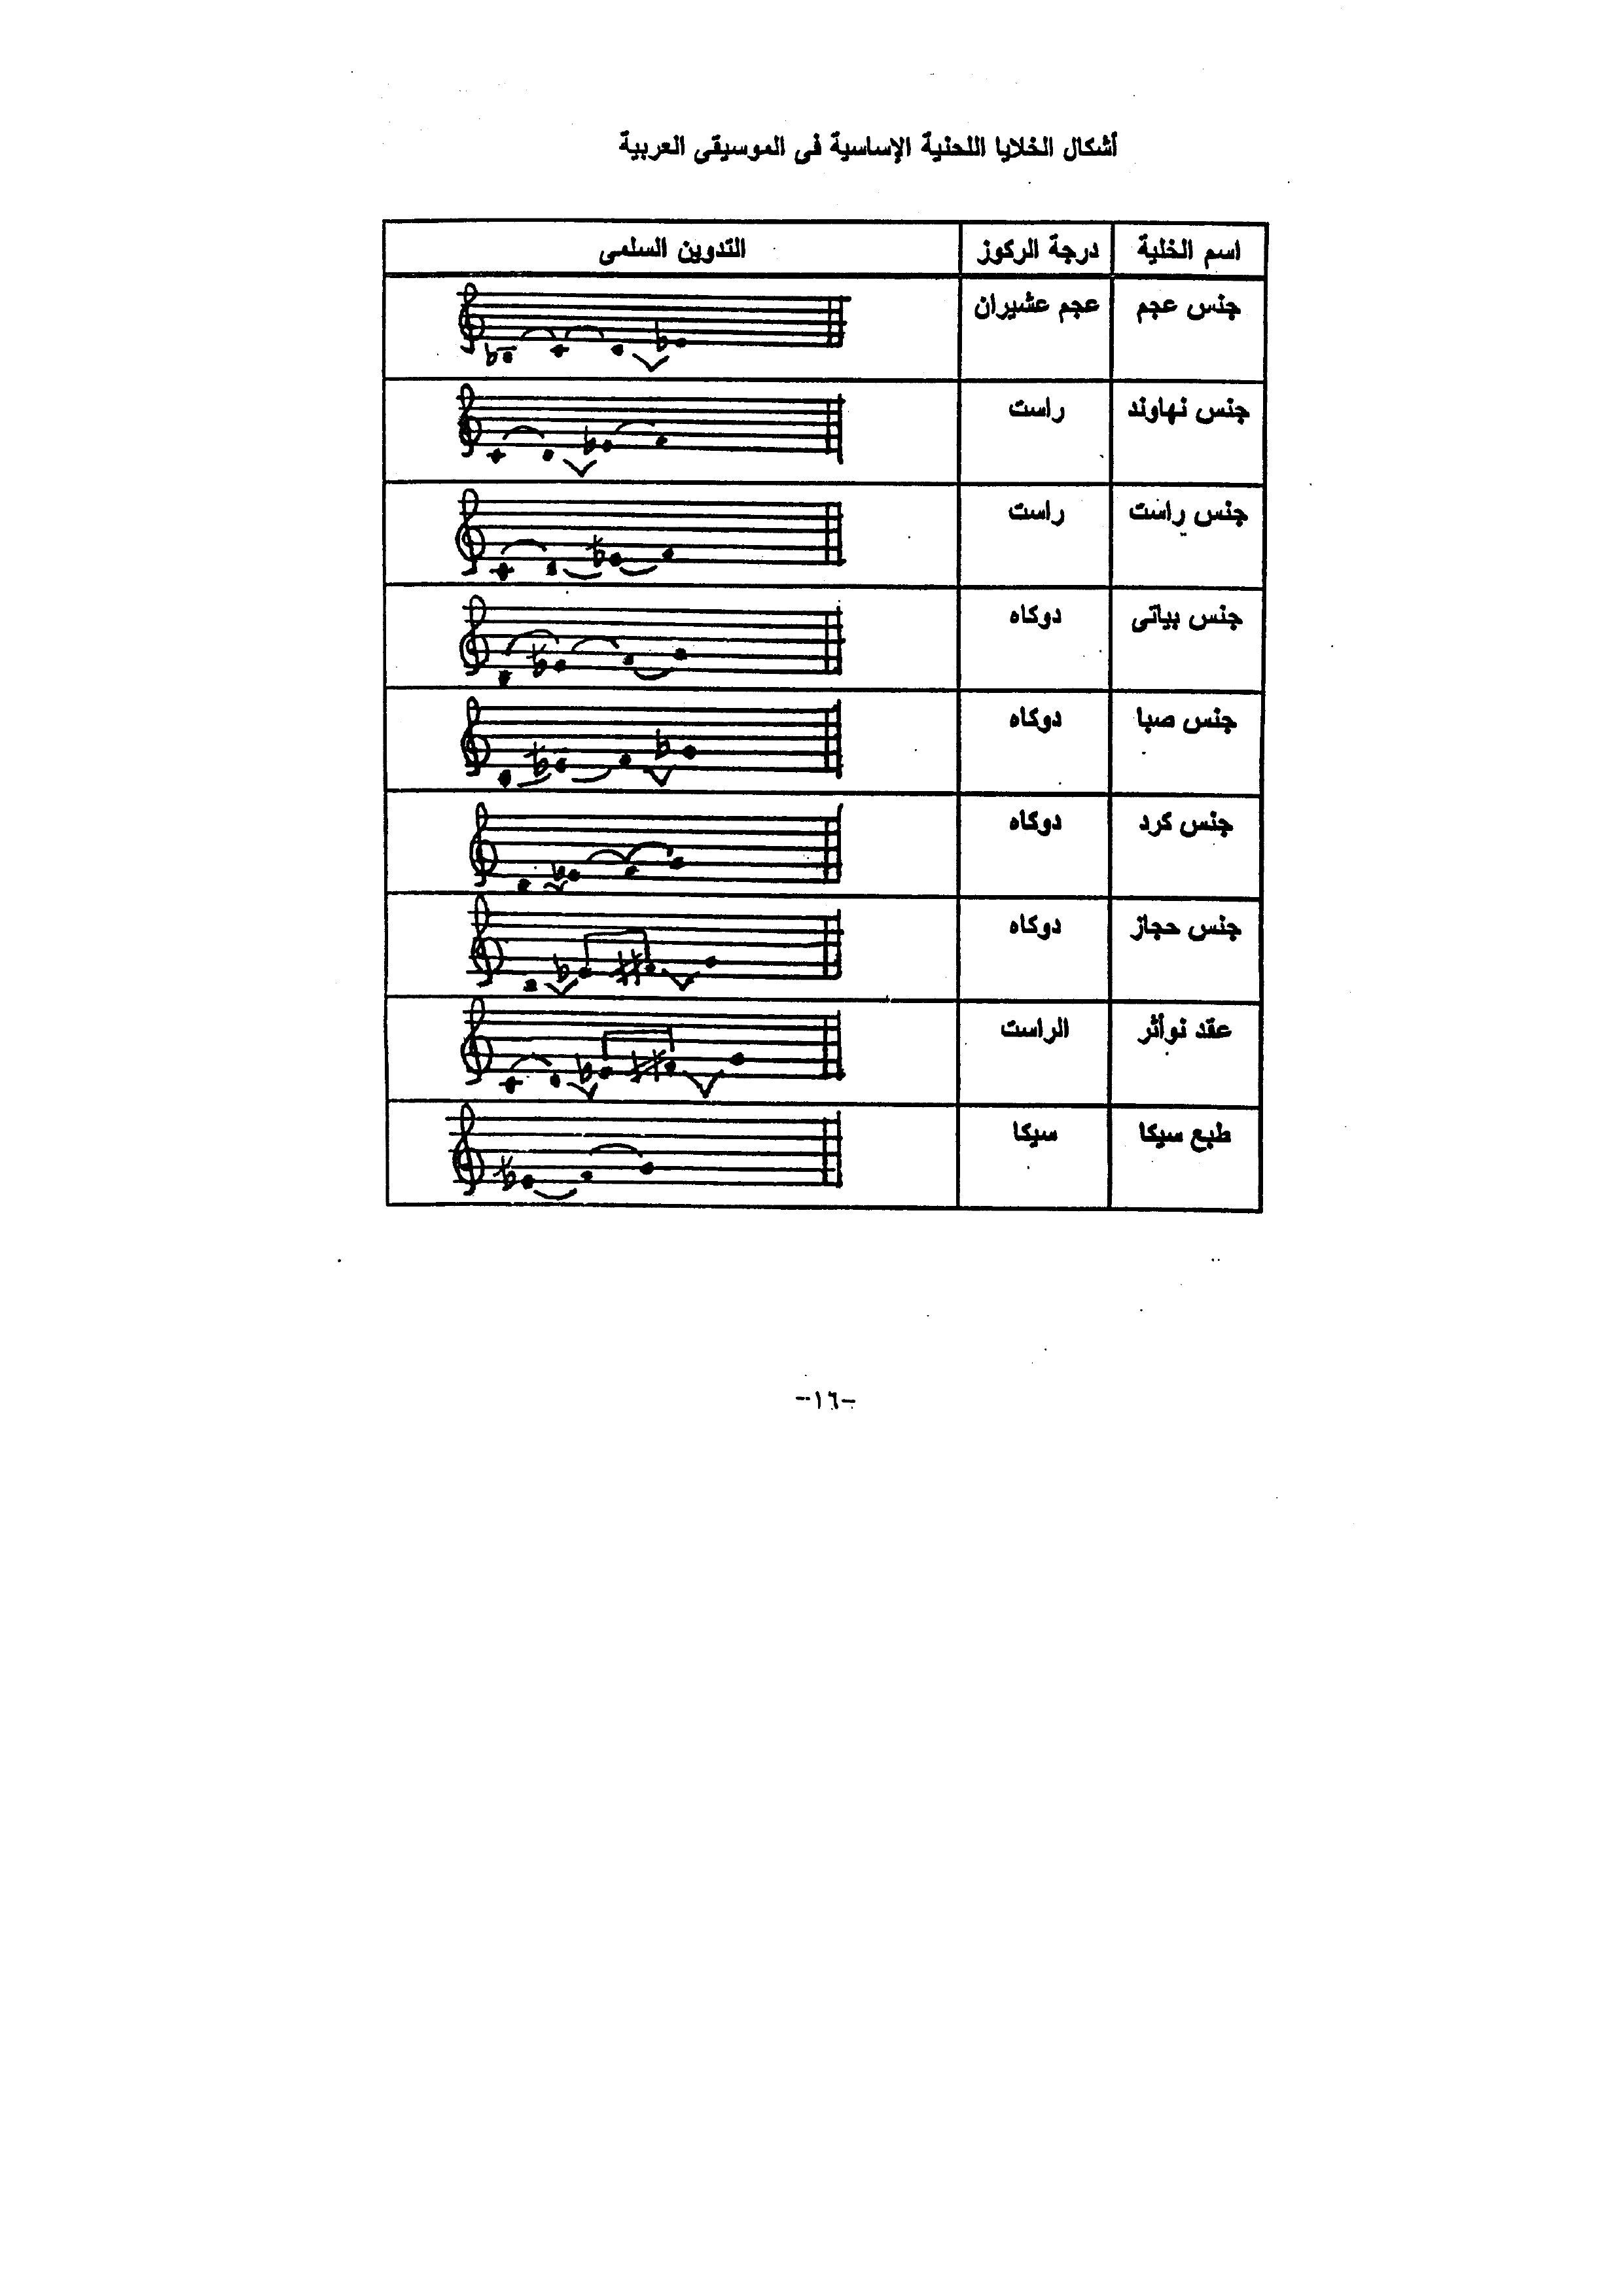 أشكال الخلايا اللحنية الإساسية فى الموسيقى العربية
اسم الخلية درجة الركوز التدوين السلمى
جنس عجم عجم عشيران
جنس نهاوند راست
جنس راست راست
جنس بياتى دوكاه
جنس صبا دوكاه
جنس كرد دوكاه
جنس حجاز دوكاه
عقد نوأثر الراست
طبع سيكا سيكا
-١٦-